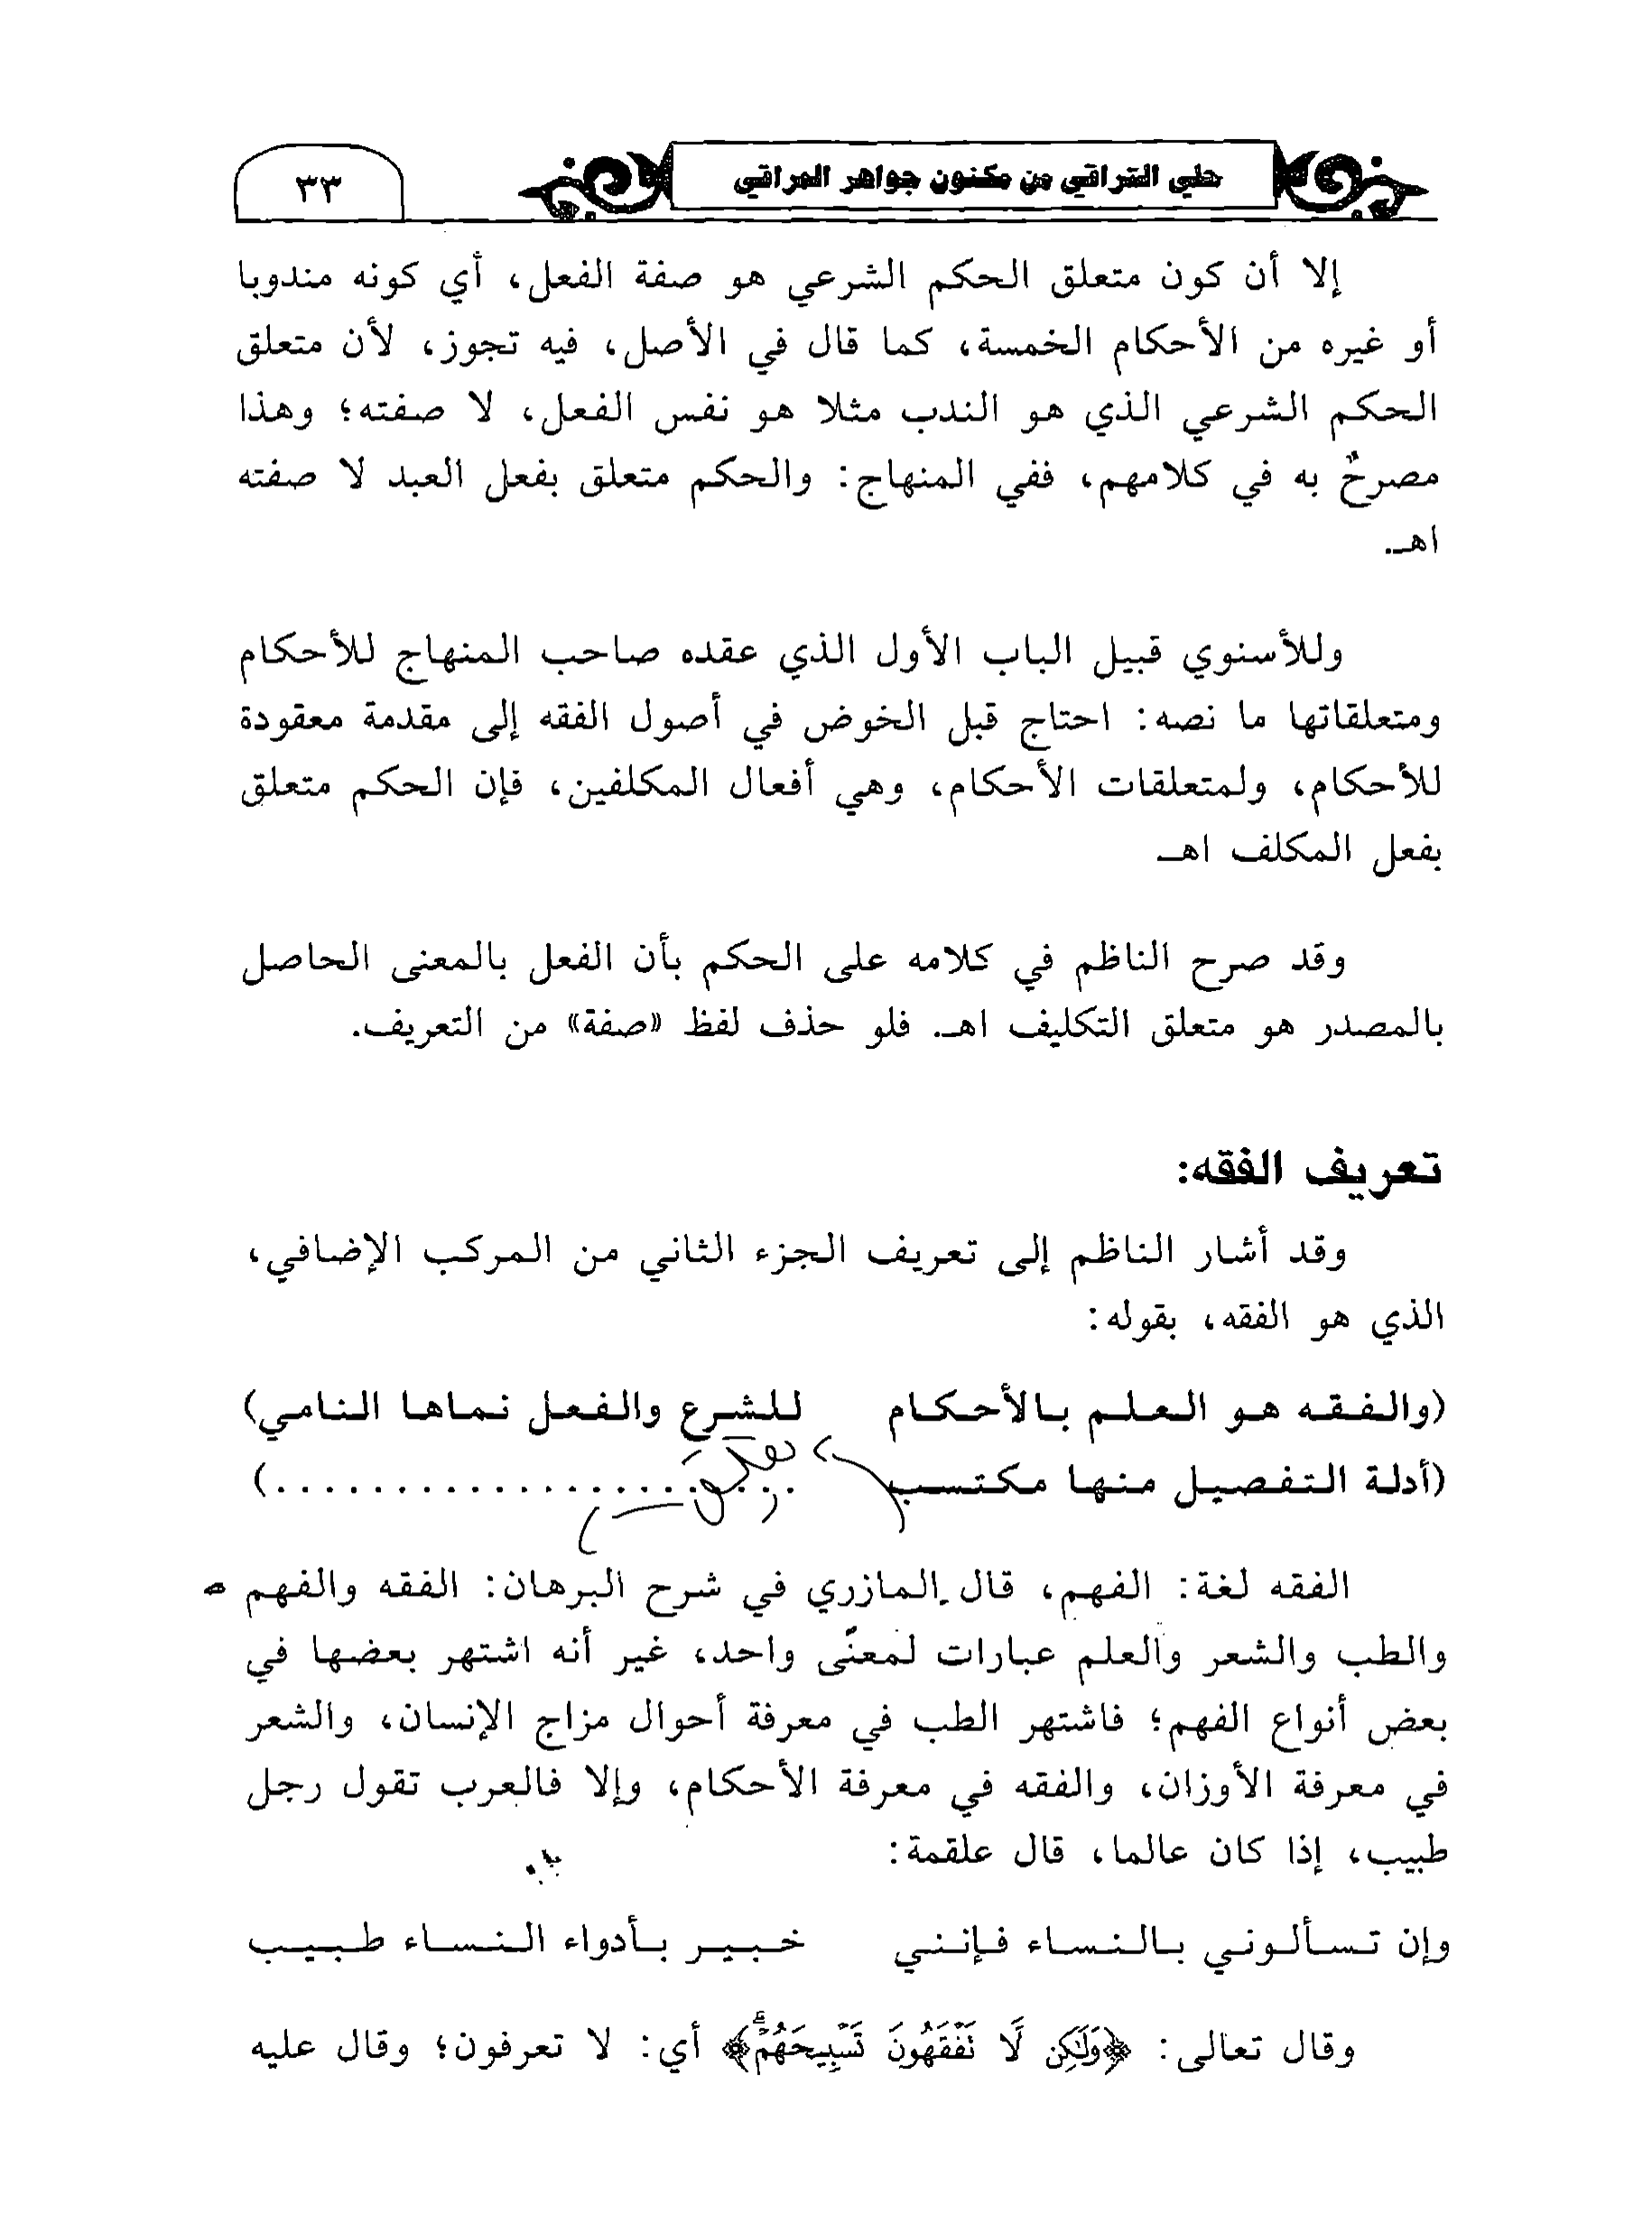 حلي التراقي من مكنون جواهر المراقي
٣٣
إلا أن كون متعلق الحكم الشرعي هو صفة الفعل، أي كونه مندوبا
أو غيره من الأحكام الخمسة، كما قال في الأصل، فيه تجوز، لأن متعلق
الحكم الشرعي الذي هو الندب مثلا هو نفس الفعل، لا صفته؛ وهذا
مصرحٌ به في كلامهم، ففي المنهاج: والحكم متعلق بفعل العبد لا صفته
اهـ.
وللأسنوي قبيل الباب الأول الذي عقده صاحب المنهاج للأحكام
ومتعلقاتها ما نصه: احتاج قبل الخوض في أصول الفقه إلى مقدمة معقودة
للأحكام، ولمتعلقات الأحكام، وهي أفعال المكلفين، فإن الحكم متعلق
بفعل المكلف اهـ
وقد صرح الناظم في كلامه على الحكم بأن الفعل بالمعنى الحاصل
بالمصدر هو متعلق التكليف اهـ. فلو حذف لفظ «صفة» من التعريف.
تعريف الفقه:
وقد أشار الناظم إلى تعريف الجزء الثاني من المركب الإضافي،
الذي هو الفقه، بقوله:
(والفقه هو العلم بالأحكام للشرع والفعل نماها النامي)
(أدلة التفصيل منها مكتسب ......................)
الفقه لغة: الفهم، قال المازري في شرح البرهان: الفقه والفهم
والطب والشعر والعلم عبارات لمعنًى واحد، غير أنه اشتهر بعضها في
بعض أنواع الفهم؛ فاشتهر الطب في معرفة أحوال مزاج الإنسان، والشعر
في معرفة الأوزان، والفقه في معرفة الأحكام، وإلا فالعرب تقول رجل
طبيب، إذا كان عالما، قال علقمة:
وإن تسألوني بالنساء فإنني خبير بأدواء النساء طبيب
وقال تعالى: ﴿وَلَٰكِن لَّا تَفْقَهُونَ تَسْبِيحَهُمْ ۗ﴾ أي: لا تعرفون؛ وقال عليه